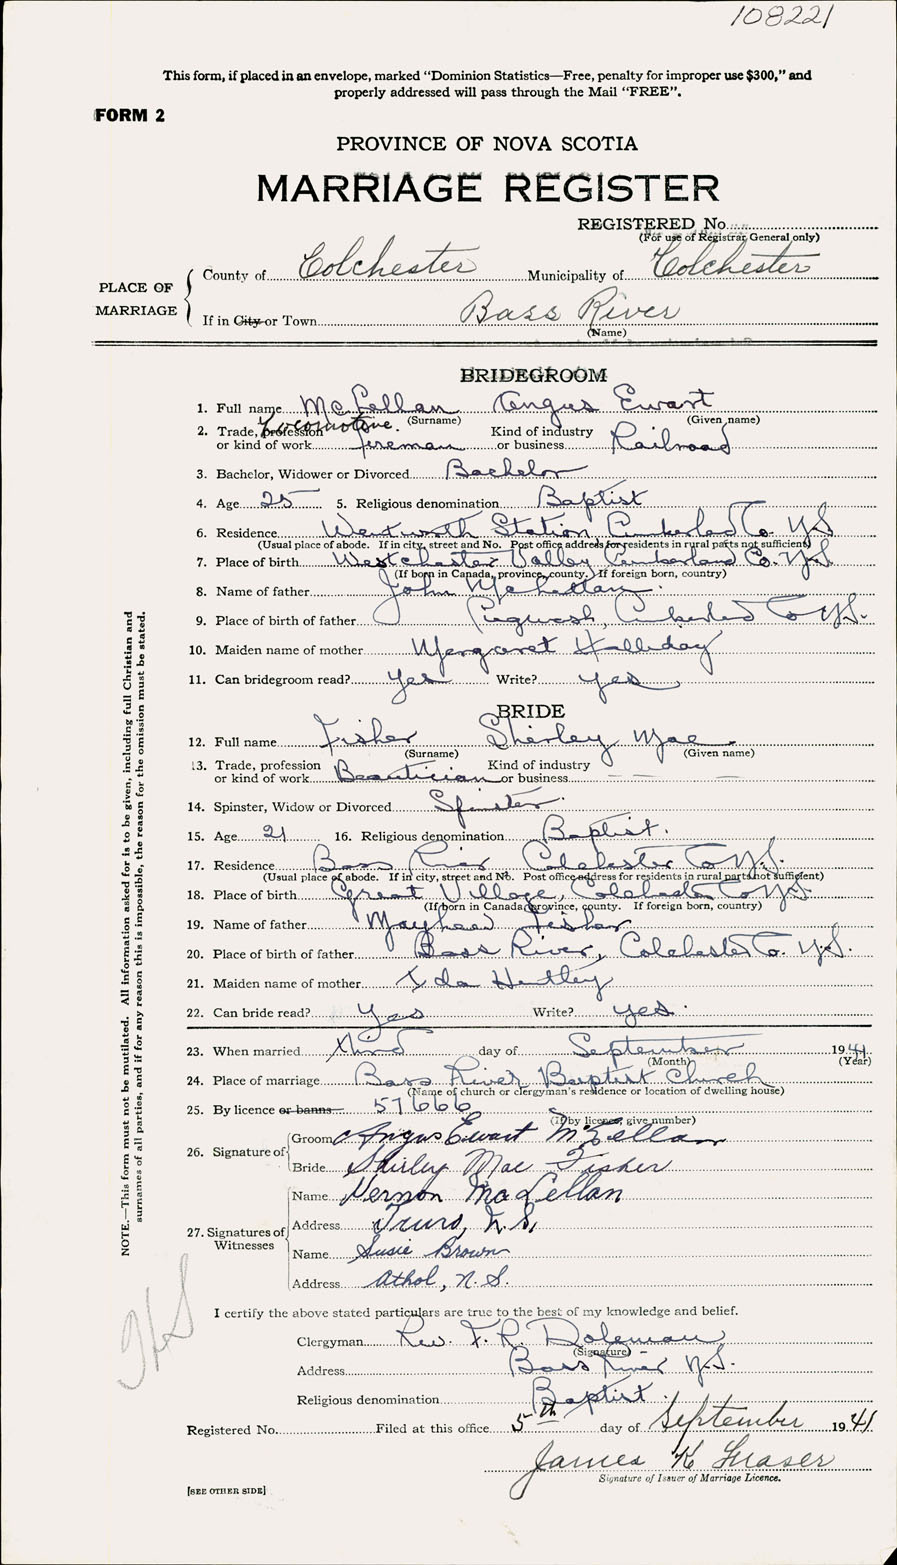 108221
This form, if placed in an envelope, marked "Dominion Statistics—Free, penalty for improper use $300," and
properly addressed will pass through the Mail "FREE".
FORM 2
PROVINCE OF NOVA SCOTIA
MARRIAGE REGISTER
REGISTERED No.
(For use of Registrar General only)
PLACE OF MARRIAGE
County of Colchester Municipality of Colchester
If in City or Town Bass River
(Name)
BRIDEGROOM
1. Full name McLellan Angus Ewart
(Surname) (Given name)
2. Trade, profession or kind of work Locomotive fireman Kind of industry or business Railroad
3. Bachelor, Widower or Divorced Bachelor
4. Age 25 5. Religious denomination Baptist
6. Residence Wentworth Station Cumberland Co. N.S
(Usual place of abode. If in city, street and No. Post office address for residents in rural parts not sufficient)
7. Place of birth Westchester Valley Cumberland Co. N.S
(If born in Canada, province, county. If foreign born, country)
8. Name of father John McLellan.
9. Place of birth of father Pugwash, Cumberland Co N.S.
10. Maiden name of mother Margaret Halliday
11. Can bridegroom read? Yes Write? yes
BRIDE
12. Full name Fisher Shirley Mae
(Surname) (Given name)
13. Trade, profession or kind of work Beautician Kind of industry or business
14. Spinster, Widow or Divorced Spinster.
15. Age 21 16. Religious denomination Baptist.
17. Residence Bass River Colchester Co N.S.
(Usual place of abode. If in city, street and No. Post office address for residents in rural parts not sufficient)
18. Place of birth Great Village, Colchester Co N.S.
(If born in Canada, province, county. If foreign born, country)
19. Name of father Fisher
20. Place of birth of father Bass River, Colchester Co. N.S.
21. Maiden name of mother Ida
22. Can bride read? Yes Write? yes.
23. When married third day of September 1941
(Month) (Year)
24. Place of marriage Bass River Baptist Church
(Name of church or clergyman's residence or location of dwelling house)
25. By licence or banns 57666
(If by licence, give number)
26. Signature of
Groom Angus Ewart McLellan
Bride Shirley Mae Fisher
27. Signatures of Witnesses
Name Vernon MacLellan
Address Truro, N.S.
Name Susie Brown
Address Athol, N.S.
I certify the above stated particulars are true to the best of my knowledge and belief.
Clergyman Rev. F. R. Doleman
(Signature)
Address Bass River N.S.
Religious denomination Baptist.
Registered No. Filed at this office 5th day of September 1941
James K Fraser
Signature of Issuer of Marriage Licence.
[SEE OTHER SIDE]
NOTE.—This form must not be mutilated. All information asked for is to be given, including full Christian and
surnames of all parties, and if for any reason this is impossible, the reason for the omission must be stated.